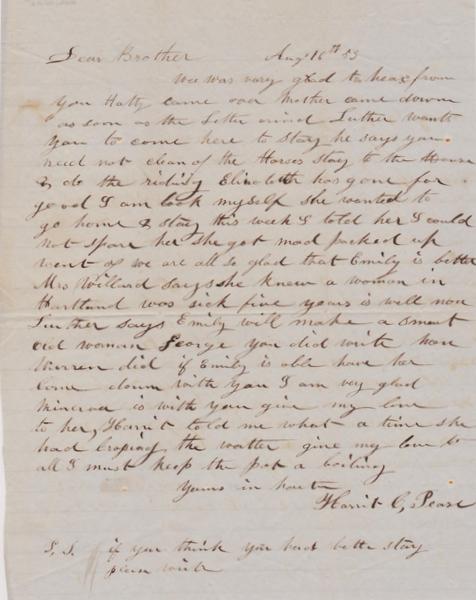 Dear Brother Aug 16th 53
wee was vary glad to hear from
you Hatty came over Mother came downe
as soon as the Letter arived Luther wants
you to come here to stay he says you
need not clean of the Horses stay to the House
& do the riding Elizabeth has gone for
good I am cook myself she wanted to
go home & stay this week I told her I could
not spare her she got mad packed up
went of we are all so glad that Emily is better
Mrs Willard says she knew a woman in
Hartland was sick five years is well now
Luther says Emily will make a smart
old woman George you did write how
did if Emily is able have her
come down with you I am very glad
Minerva is with you give my love
to her, Harrit told me what a time she
had croping the watter give my love to
all I must keep the pot a boiling
Yours in haste
Harrit C, Pease
P. S. if you think you had better stay
please write